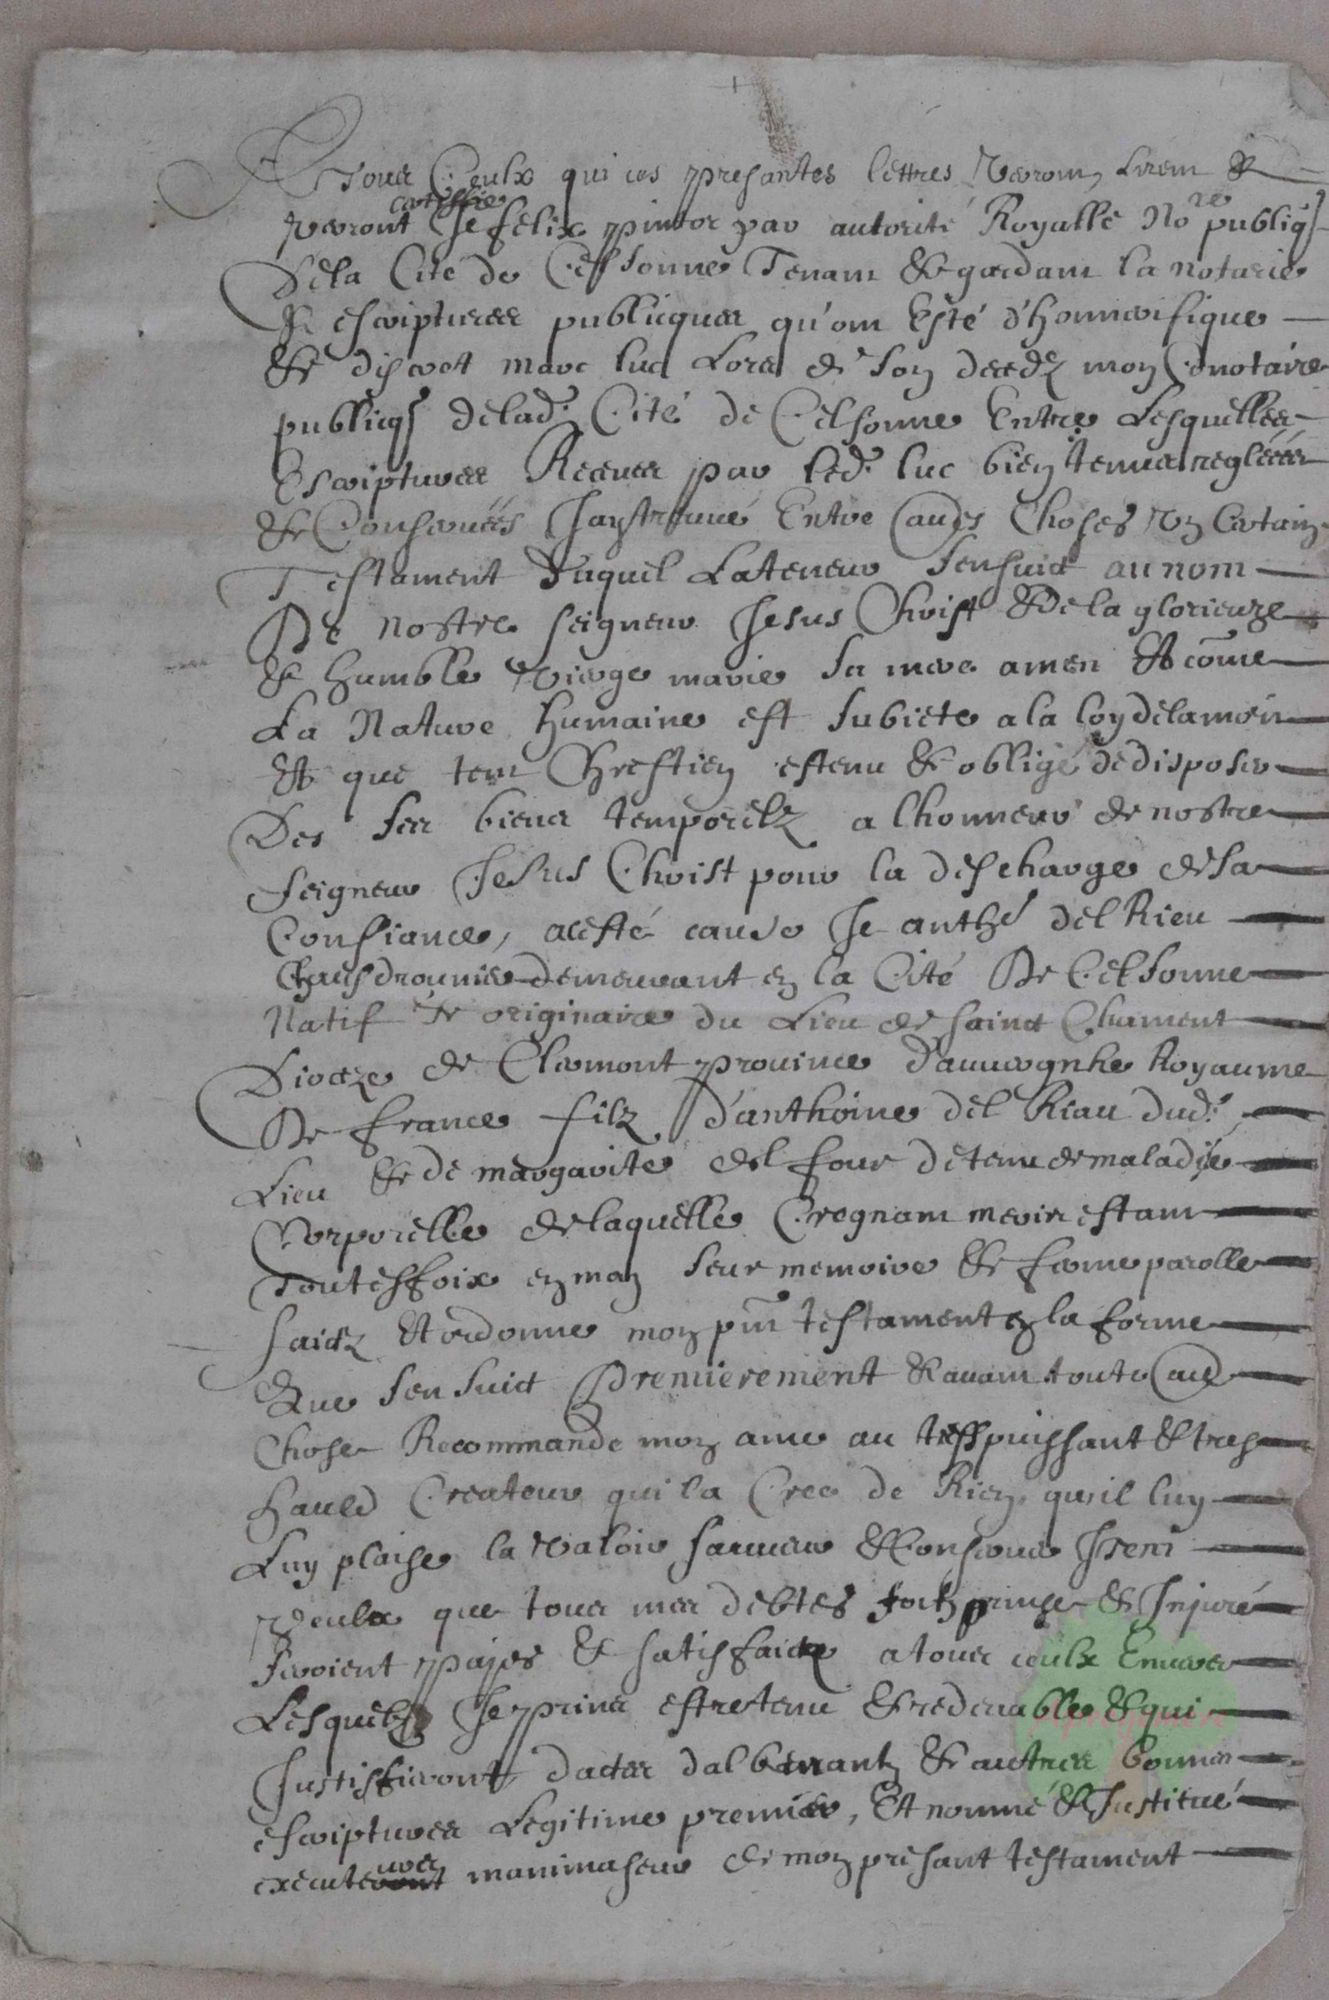 A tous ceulx qui ces presantes lettres verront, liront &
certiffie
verront Je felix pintor par autorité Royalle No.re publiqz
De la Cité de Celsonne Tenant & gardant la notarie
& escriptures publicques qu'ont Esté d'honnorifique
& discret marc luc Lors de son deceds mon Conotaire
publicqz de lad. Cité de Celsonne Entre Lesquelles
Escriptures Receues par led. luc bien tenues regleées
& Conservées Jay trouvé Entre Choses Un Certain
Testament Duquel La teneur sensuict au nom
De nostre seigneur Jesus Christ & De la glorieuze
& humble Vierge marie sa mere amen Et cõme
La Nature humaine est subiete a la loy de la mort
Et que tout Chrestien est tenu & obligé de disposer
Des ses biens temporelz a lhonneur de nostre
seigneur Jesus Christ pour la descharge de sa
Consiance, a ceste cause Je anthe del Rieu
Chausdronnier demeurant en la Cité De Celsonne
Natif & originaire du Lieu de sainct Chament
Dioceze de Clermont province d'auvergnhe Royaume
De france filz D'anthoine del Riau dud.
Lieu & de margarite del four detenu de maladye
Corporelle de laquelle Cregnant morir estant
Toutesfoix en mon seur memoire & ferme parolle
faictz Et ordonne mon pnt testament en la forme
que sensuict Premierement & avant toute
Chose Recommande mon ame au trespuissant & tres
hauld Createur qui la Cree de Rien, qu'il luy
Luy plaise la valoir sauver & Conserver Item
Veulx que tous mes debtes & Injure
seroient payes & satisfaictz a tous ceulx Envers
Lesquelz Je estre tenu & redevable & qui
Justiffieront dactes dalberantz & autres bonnes
escriptures Legitime premier, Et nommé & Justicué
ures
execute manimaseur de mon presant testament